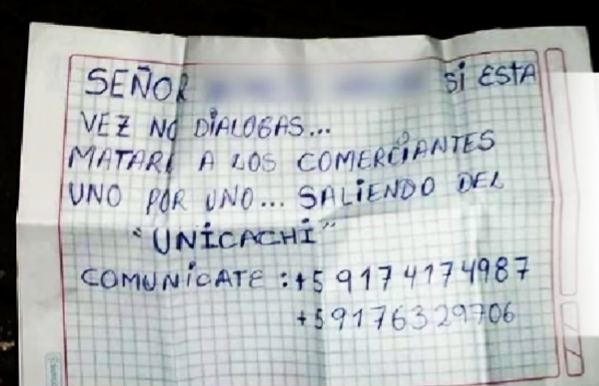 SEÑOR SI ESTA
VEZ NO DIALOGAS...
MATARE A LOS COMERCIANTES
UNO POR UNO... SALIENDO DEL
"UNICACHI"
COMUNICATE : +59174174987
+59176329706